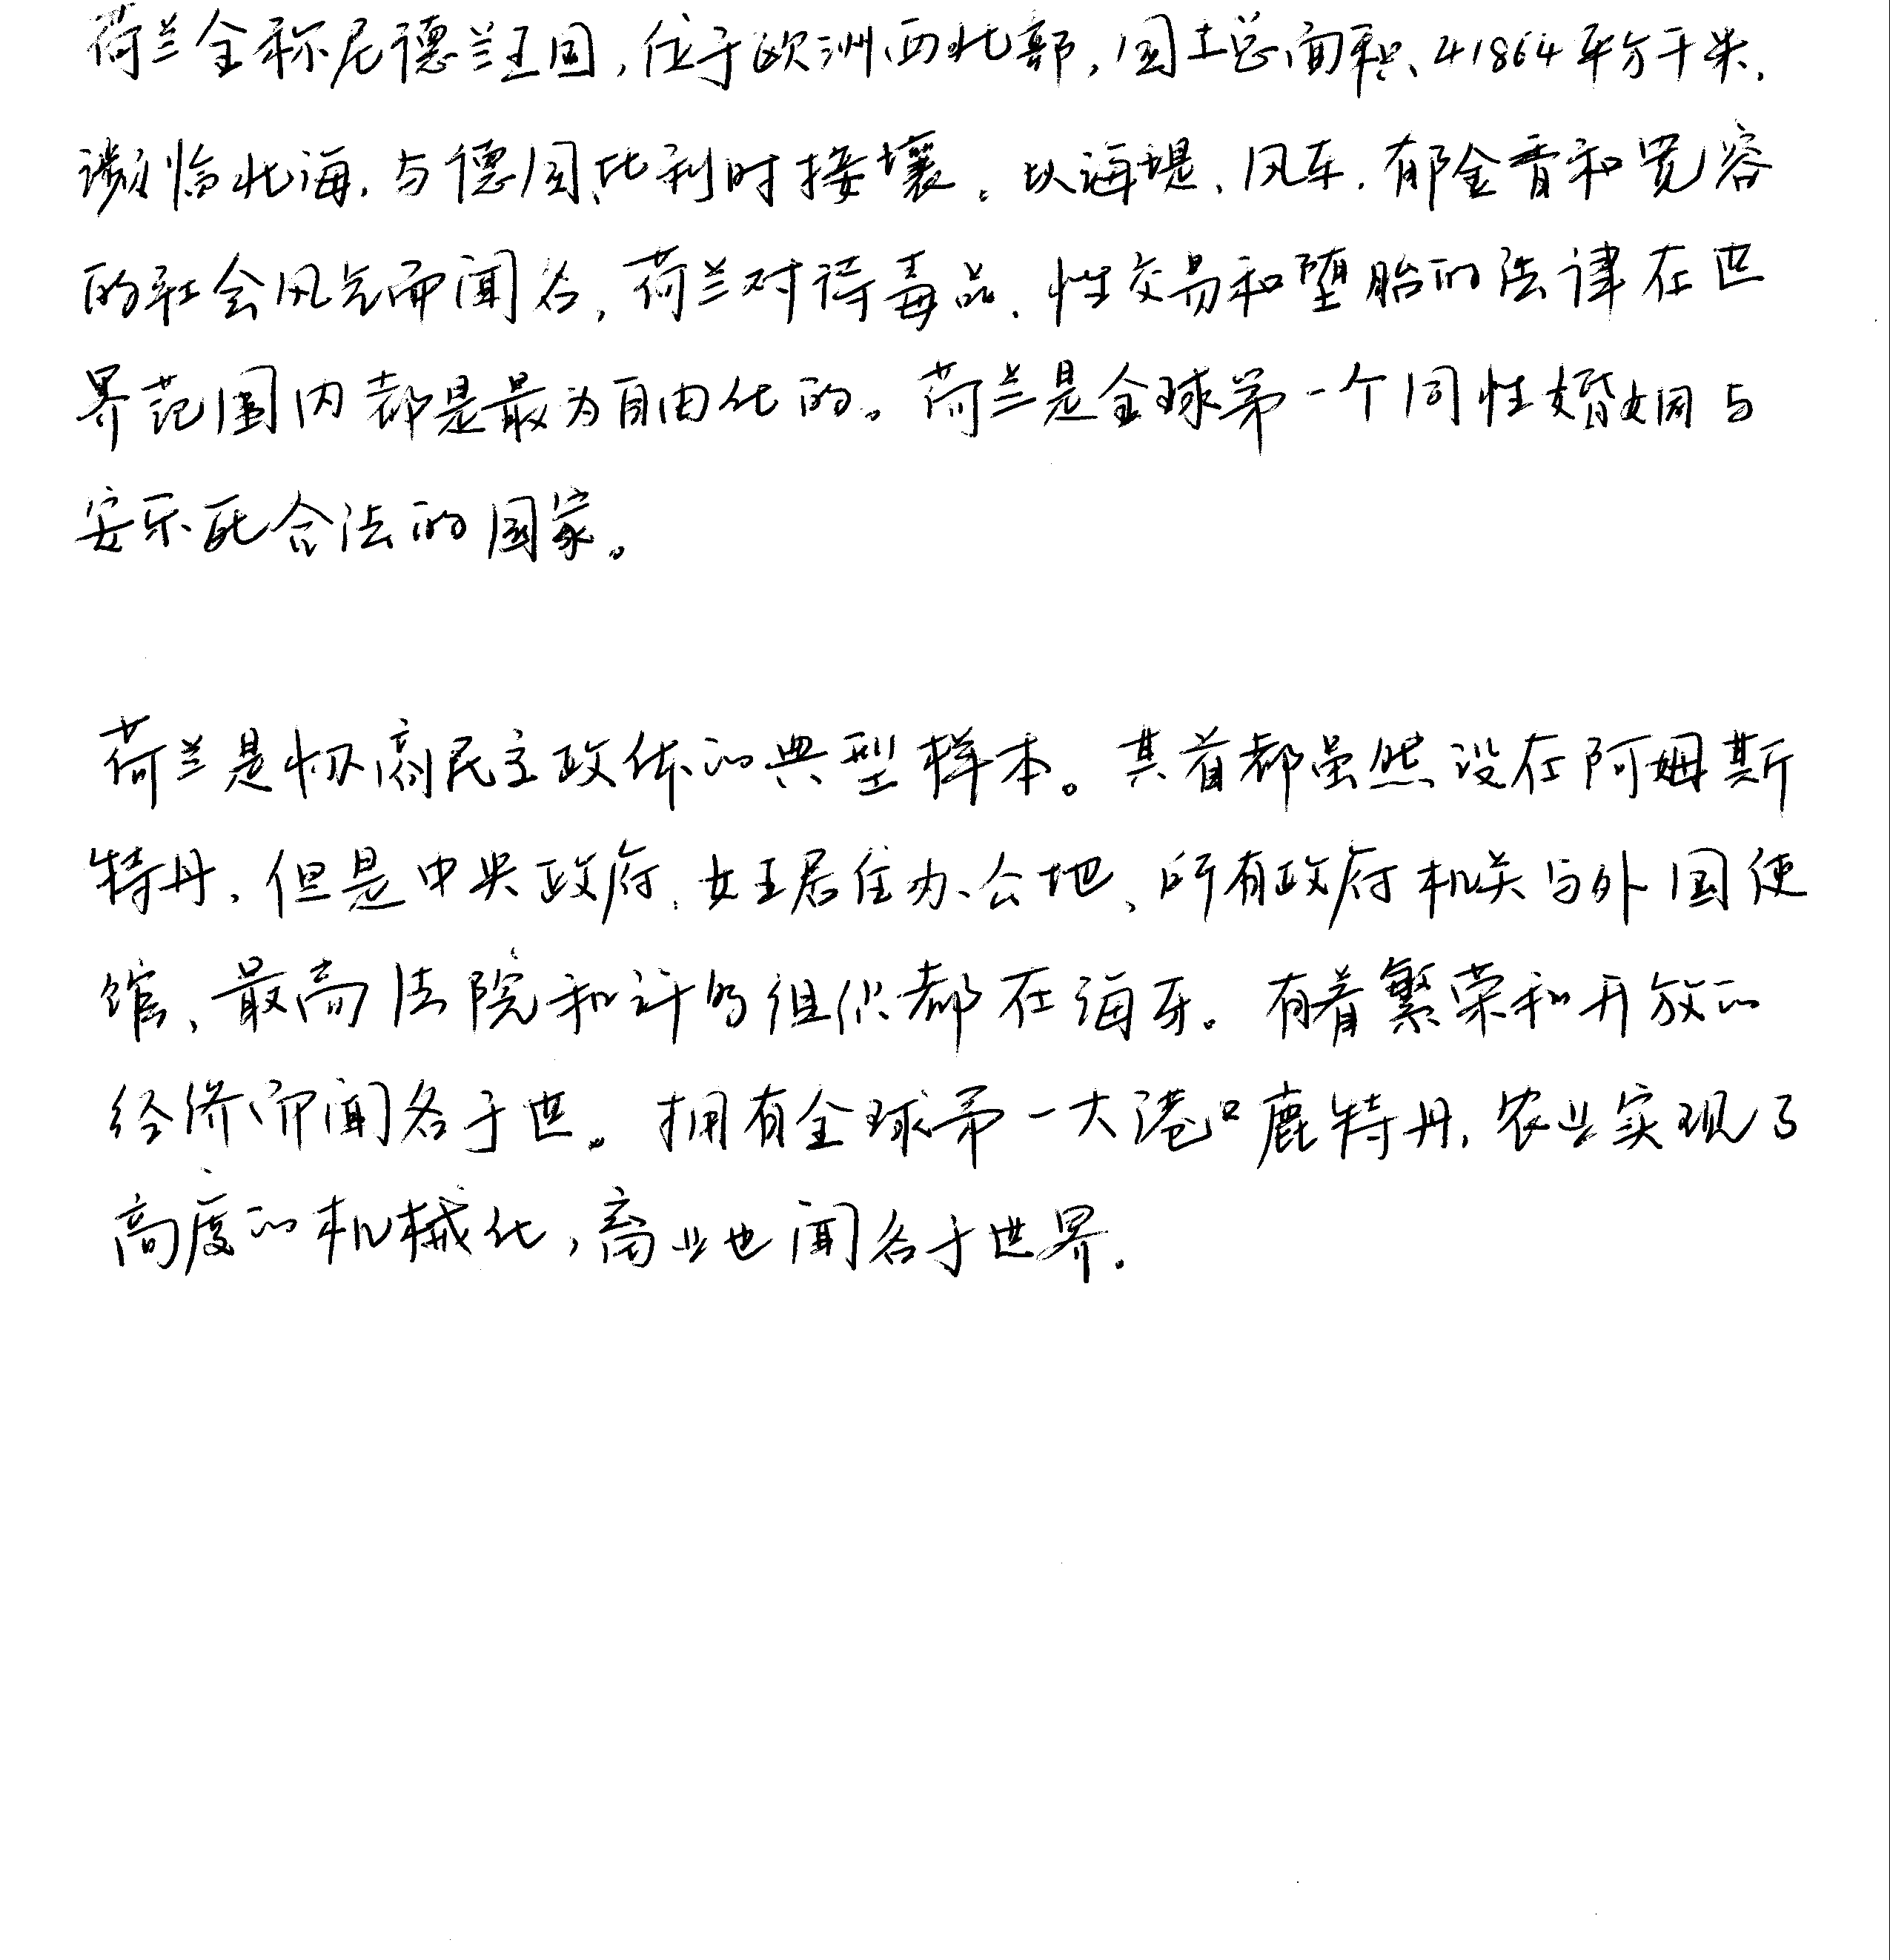 荷兰全称尼德兰王国,位于欧洲西北部,国土总面积41864平方千米,
濒临北海,与德国、比利时接壤。以海堤、风车、郁金香和宽容
的社会风气而闻名,荷兰对待毒品、性交易和堕胎的法律在世
界范围内都是最为自由化的。荷兰是全球第一个同性婚姻与
安乐死合法的国家。
荷兰是极高民主政体的典型样本。其首都虽然设在阿姆斯
特丹,但是中央政府、女王居住办公地、所有政府机关与外国使
馆、最高法院和许多组织都在海牙。有着繁荣和开放的
经济而闻名于世。拥有全球第一大港口鹿特丹,农业实现了
高度的机械化,畜业也闻名于世界.